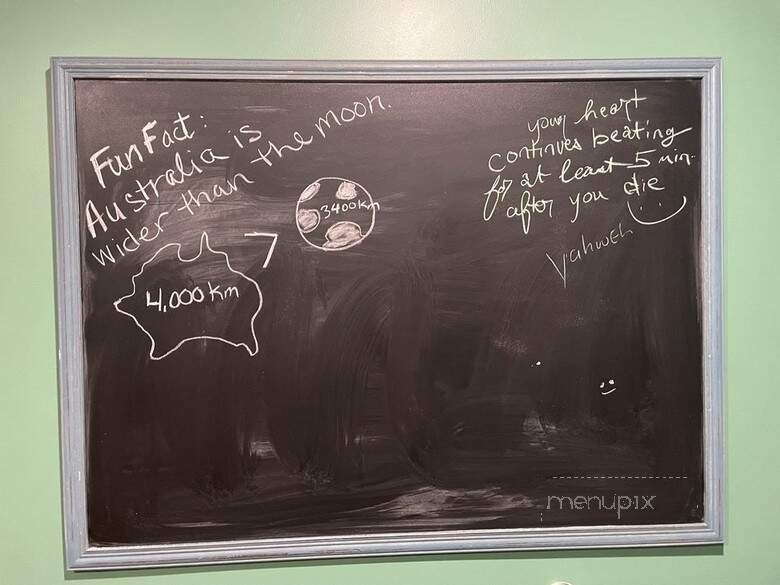 Fun Fact:
Australia is
wider than the moon.
4,000 km
>
3400km
your heart
continues beating
for at least 5 min.
after you die
Yahweh
menupix